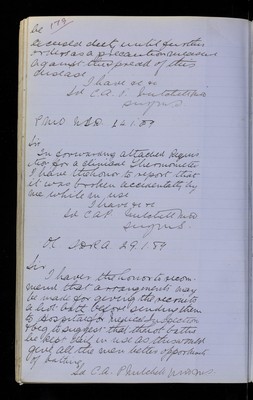 179
be
increased diet, until further
orders as a precaution measure
against the spread of this
disease
I have &c
Sd C.A.P.
Surgns
PMO 12.1.89
Sir
In forwarding attached Requis
ition for a clinical Thermometer
I have the honor to report that
it was broken accidentally by
me while in use
I have &c
Sd C.A.P.
Surgns
29.1.89
Sir
I have the honor to recom-
mend that arrangements may
be made for giving the recruits
a hot bath before sending them
to Hospital for Medical Inspection
& beg to suggest that the hot baths
be kept in use as this would
give all the men better opportunit
of bathing
Sd C.A.P.